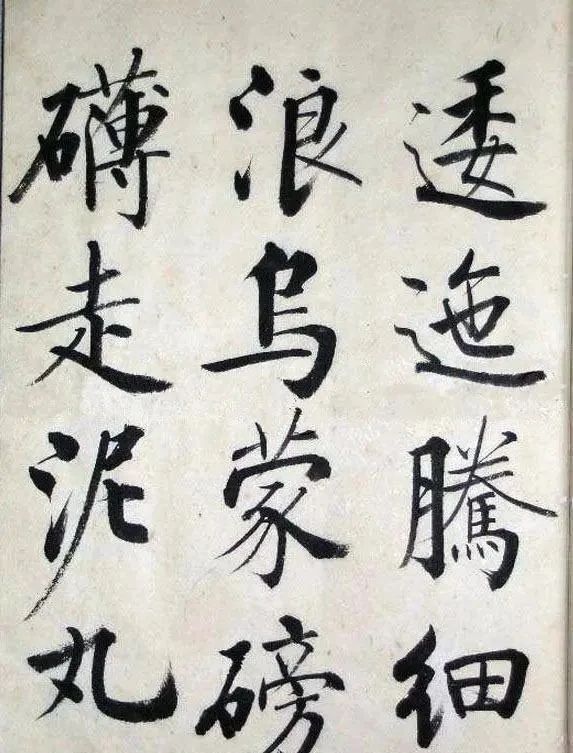 逶迤騰细
浪烏蒙磅
礴走泥丸